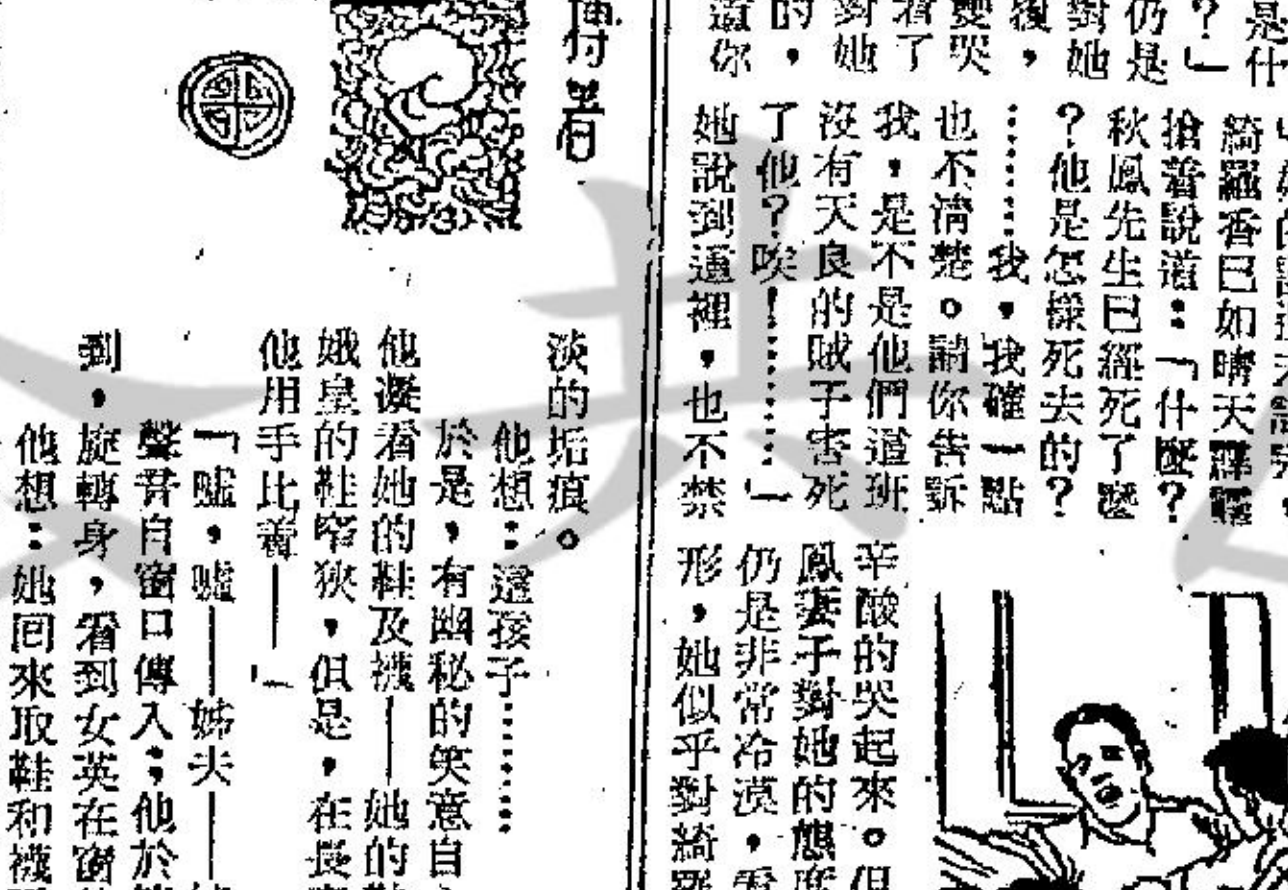 是什
？」
仍是
對她
後，
嬰哭
着了
對她
的，
道你
綺羅香已如晴天霹靂
搶着說道：「什麼？
秋鳳先生已經死了麼
？他是怎樣死去的？
………我，我確一點
也不清楚。請你告訴
我，是不是他們這班
沒有天良的賊子害死
了他？唉！………」
她說到這裡，也不禁
辛酸的哭起來。但
鳳妻子對她的態度
仍是非常冷漠，
形，她似乎對綺羅
淡的垢痕。
他想：這孩子………
於是，有幽秘的笑意自
他凝看她的鞋及襪——她的鞋
娥皇的鞋窄狹，但是，在長
他用手比着——」
「噓，噓——姊夫——
聲音自窗口傳入；他於
到，旋轉身，看到女英在窗
他想：她回來取鞋和襪